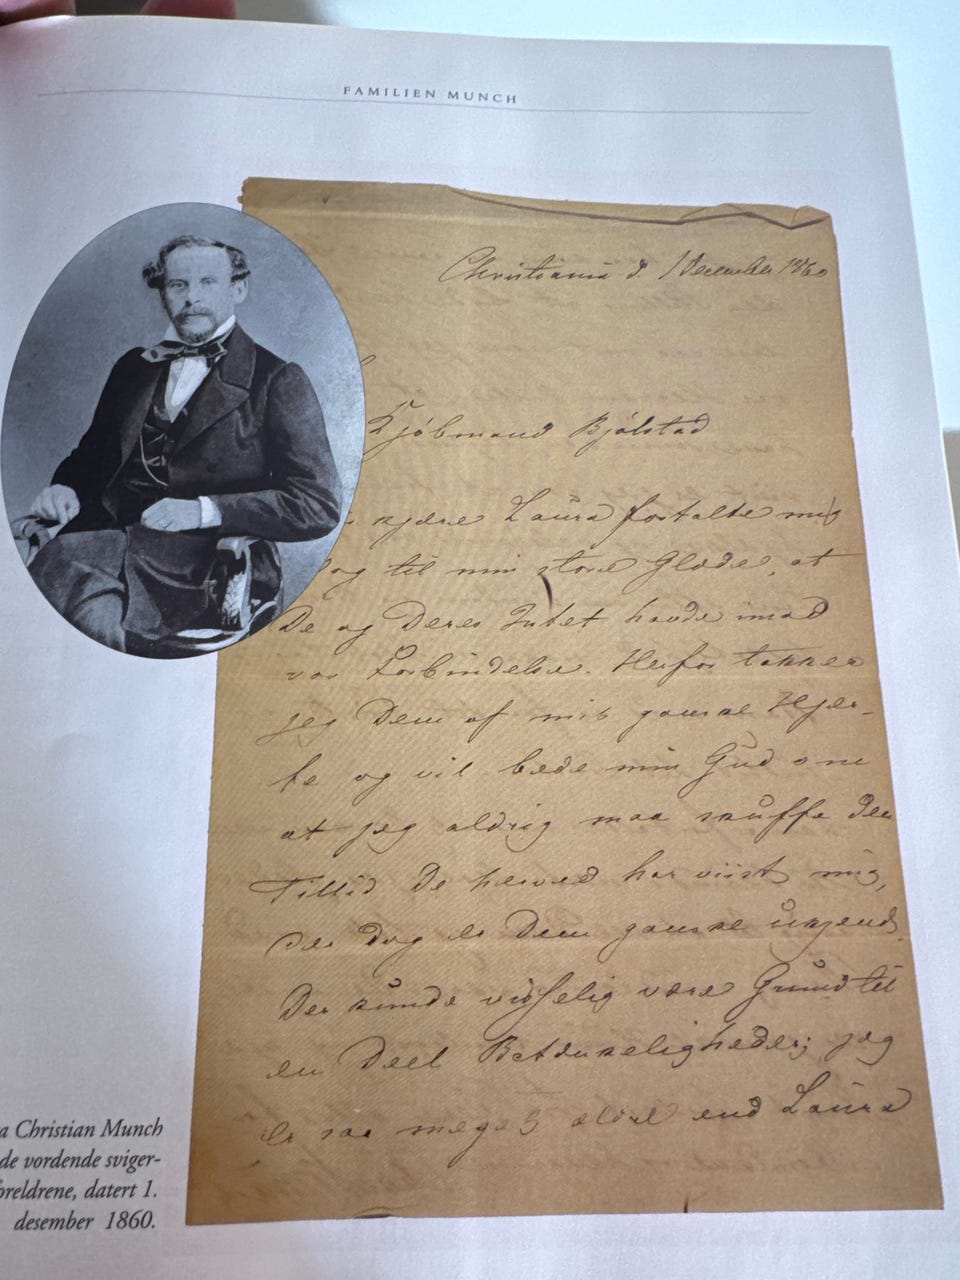 FAMILIEN MUNCH
Christiania d. 1 December 1860
Kjøbmand Bjølstad
kjære Laura fortalte mig
og til min store Glæde, at
De og Deres Intet havde imod
vor Forbindelse. Herfor takker
jeg Dem af mit ganske Hjer-
te og vil bede min Gud om
at jeg aldrig maa skuffe den
Tillid De herved har viist mig,
der dog er Dem ganske ukjendt.
Der kunde vidsselig være Grund til
en Deel Betænkeligheder; jeg
er saa meget ældre end Laura
a Christian Munch
de vordende sviger-
oreldrene, datert 1.
desember 1860.